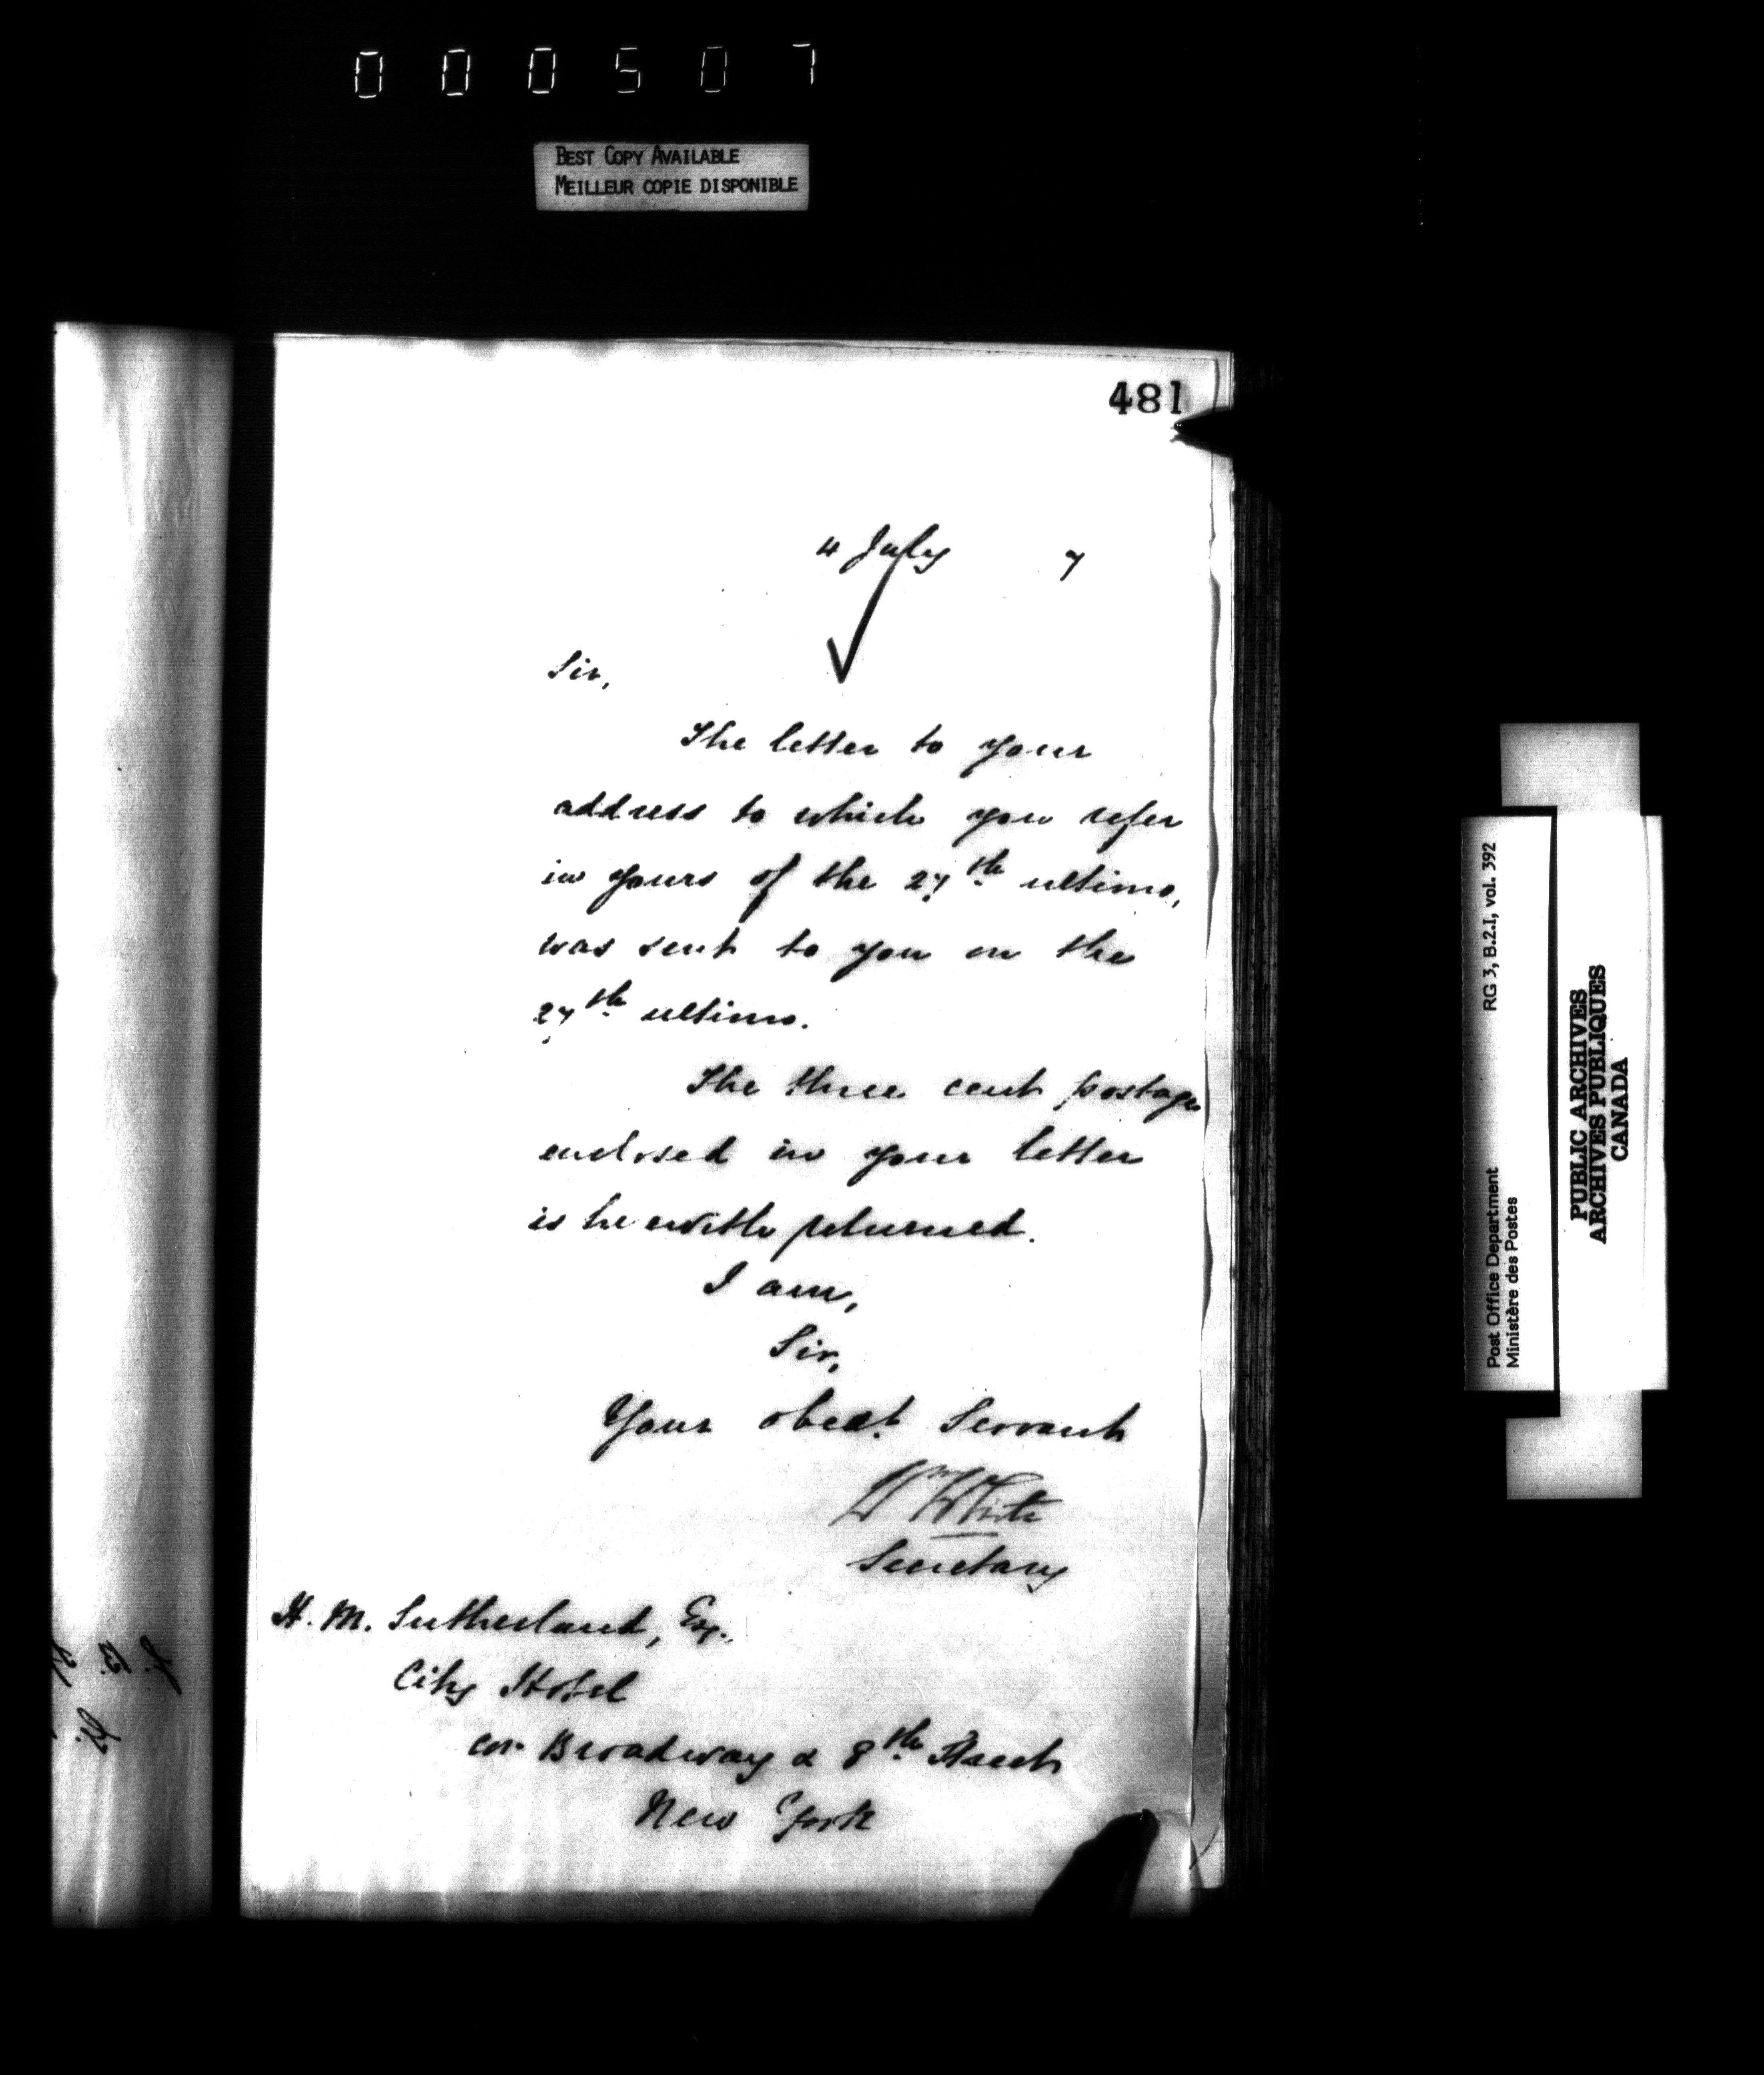 000507
BEST COPY AVAILABLE
MEILLEUR COPIE DISPONIBLE
481
4 July 7
Sir,
The letter to your
address to which you refer
in yours of the 27th ultimo,
was sent to you on the
27th ultimo.
The three cent postage
enclosed in your letter
is herewith returned.
I am,
Sir,
Your obedt. Servant
Wm White
Secretary
H. M. Sutherland, Esq.,
City Hotel
cor. Broadway & 8th Street
New York
Post Office Department RG 3, B.2.I, vol. 392
Ministère des Postes
PUBLIC ARCHIVES
ARCHIVES PUBLIQUES
CANADA